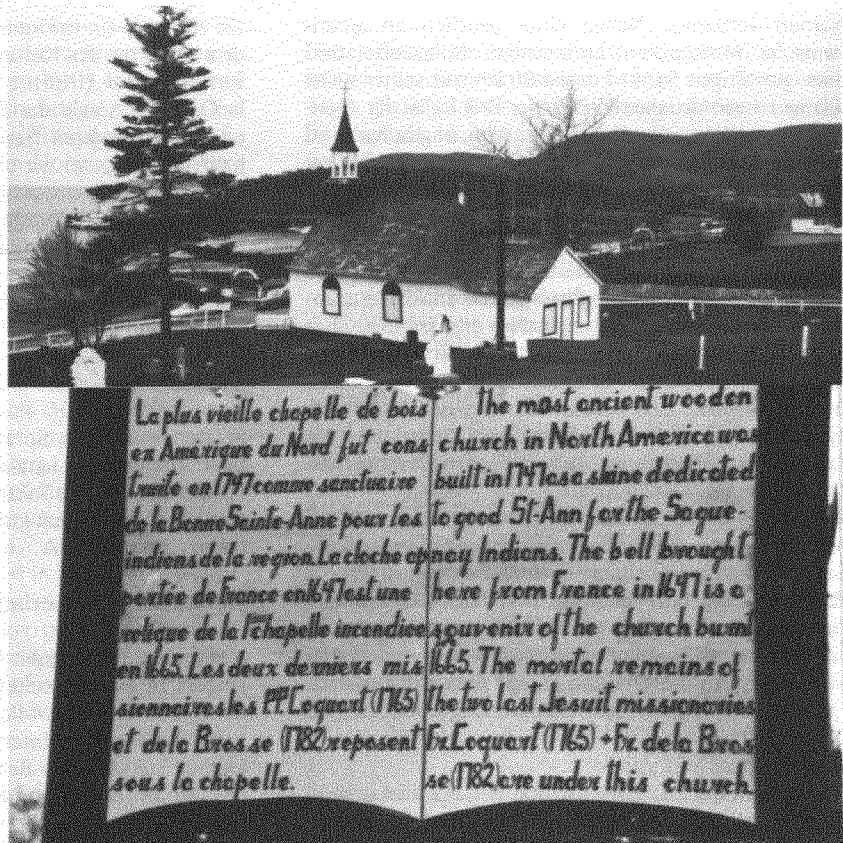 La plus vieille chapelle de bois
en Amérique du Nord fut cons
truite en 1747 comme sanctuaire
de la Bonne Sainte-Anne pour les
indiens de la région. La cloche ap
portée de France en 1647 est une
relique de la 1ère chapelle incendiee
en 1665. Les deux derniers mis
sionnaires les PP Coquart (1765)
et de la Brosse (1782) reposent
sous la chapelle.
The most ancient wooden
church in North America was
built in 1747 as a shine dedicated
to good St-Ann for the Sague-
nay Indians. The bell brought
here from France in 1647 is a
souvenir of the church burnt
1665. The mortal remains of
the two last Jesuit missionaries
Fr. Coquart (1765) + Fr. de la Bros
se (1782) are under this church.